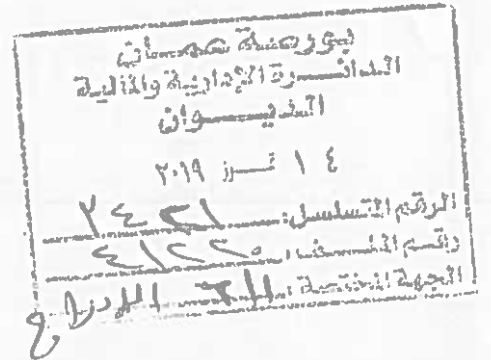 بورصة عمان
الدائرة الإدارية والمالية
الديوان
١٤ تموز ٢٠١٩
الرقم المتسلسل: ٢٤٢١
رقم الملف: ٤١٢٢٠
الجهة المختصة: